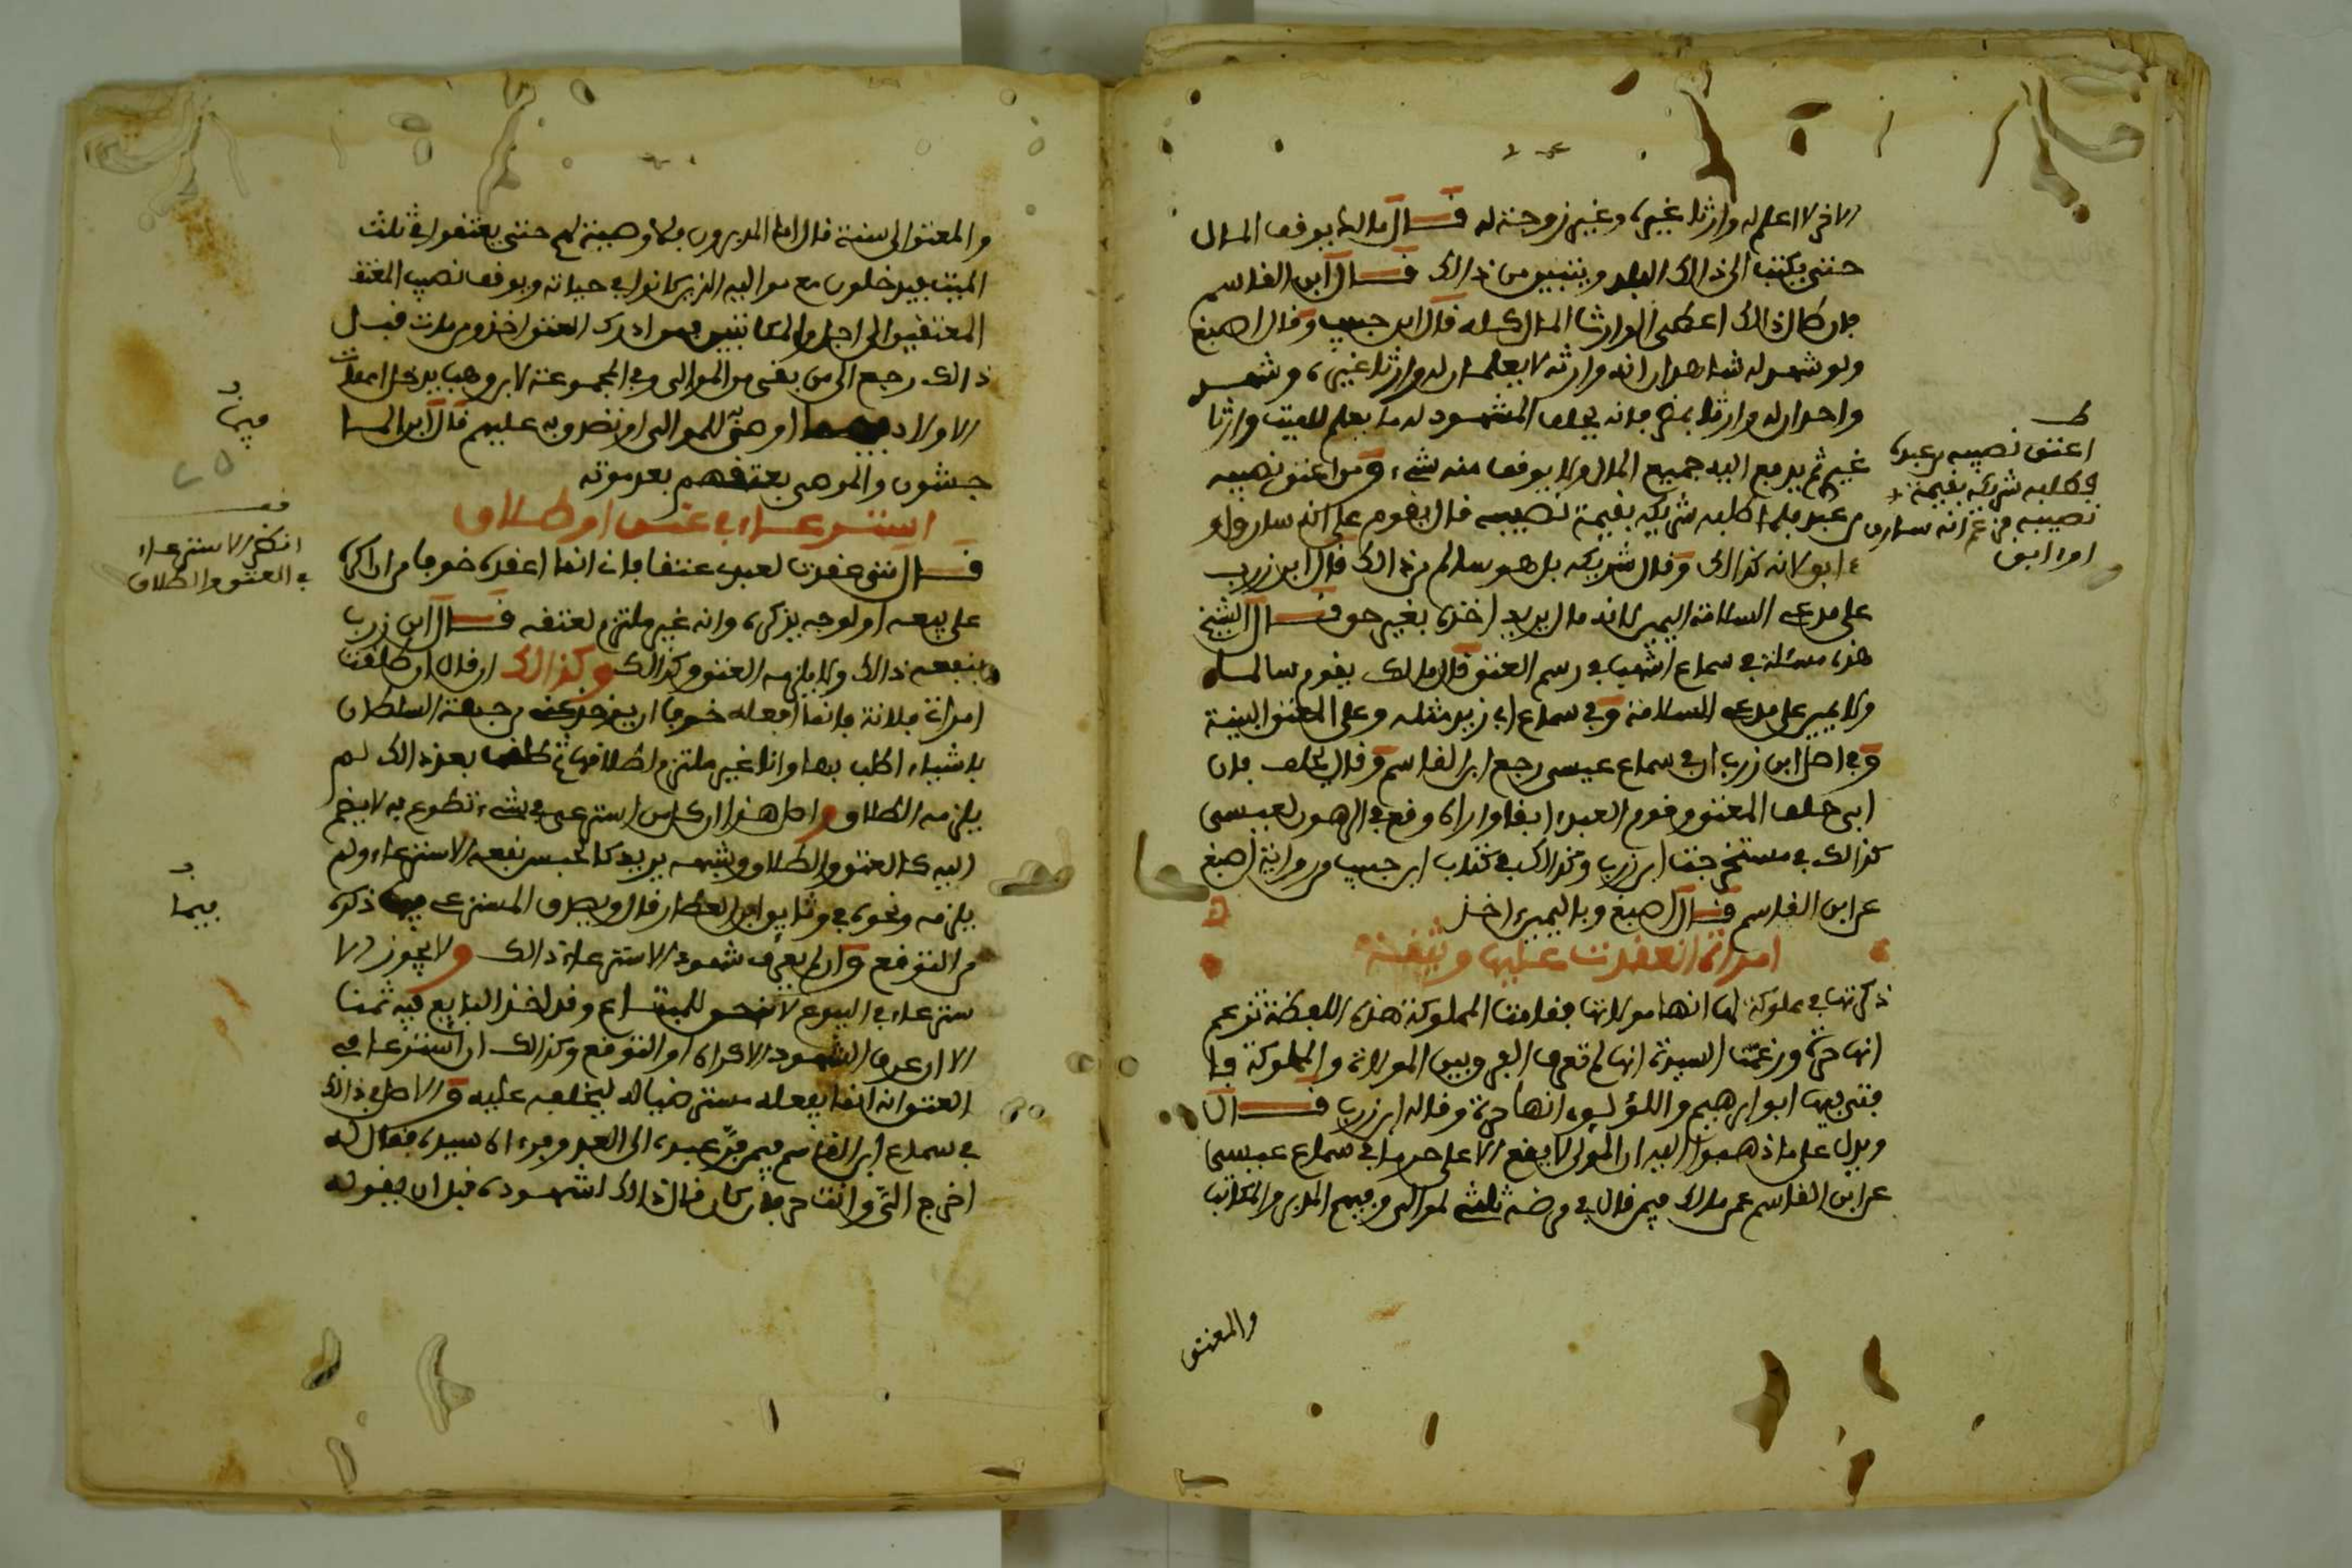 الاخر لا اعلم له وارثا غيره وغير زوجته له قال مالك يوقف المال
حتى يكتب الى ذالك البلد ويتبين من ذالك قال ابن القاسم
فان كان ذالك اعطى الوارث المال كله قال ابن حبيب وقال اصبغ
ولو شهد له شاهدان انه وارثه لا يعلمان له وارثا غيره وشهد
واحد ان له وارثا بمصر فانه يحلف المشهود له ما يعلم للميت وارثا
غيره ثم يدفع اليه جميع المال ولا يوقف منه شيء ومن اعتق نصيبه
من عبد فلما طلبه شريكه بقيمة نصيبه قال يقوم على انه سارق او
ابق لانه كذالك وقال شريكه بل هو سالم من ذالك قال ابن زرب
على مدعي السلامة اليمين لانه مال يريد اخذه بغير حق قال الشيخ
هذه مسئلة في سماع اشهب في رسم العتق قال مالك يقوم سالما
ولا يمين على مدعي السلامة وفي سماع ابي زيد مثله وعلى المعتق البينة
وفي اصل ابن زرب ان في سماع عيسى رجع ابن القاسم وقال يحلف فان
ابى حلف المعتق وقوم العبد ابقا واراه وقع في الرهون لعيسى
كذالك في مستخرجة ابن زرب وكذالك في كتاب ابن حبيب من رواية اصبغ
عن ابن القاسم قال اصبغ وباليمين اخذ
امراة انعقدت عليها وثيقة
ذكرتها في مملوكة لها انها مولاتها فقامت المملوكة هذه اللفظة تزعم
انها حرة وزعمت السيدة انها لم تعرف الفرق بين المولاة والمملوكة فا
فتى فيها ابو ابرهيم واللؤلؤي انها حرة وقاله ابن زرب قال
ويدل على ما ذهبوا اليه ان المولى لا يقع الا على حر ما في سماع عيسى
عن ابن القاسم عن مالك فيمن قال في مرضه ثلثي لموالي وفيهم المدبر والمكاتب
والمعتق
ط
اعتق نصيبه من عبده
وطلبه شريكه بقيمة
نصيبه فزعم انه سارق
او ابق
والمعتق الى سنة قال اما المدبرون فلا وصية لهم حتى يعتقوا في ثلث
الميت فيدخلون مع مواليه الذين كانوا في حياته ويوقف نصيب المعتق
المعتقين الى اجل والمكاتبين فمن ادرك العتق اخذ ومن مات قبل
ذالك رجع الى من بقي من الموالي وفي المجموعة لابن وهب يدخل امهات
الاولاد فيما اوصى للموالي او تصدق به عليهم قال ابن الما
جشون والموصى بعتقهم بعد موته
استرعاء في عتق او طلاق
قال متى عقدت لعبدي عتقا فانما اعقده خوفا من ان اكره
على بيعه او لوجه يذكره وانه غير ملتزم لعتقه قال ابن زرب
ينفعه ذالك ولا يلزمه العتق وكذالك وكذالك ان قال ان طلقت
امراتي فلانة فانما افعله خوفا ان من جهة السلطان
باشياء اطلب بها وانا غير ملتزم لطلاقها ثم طلقها بعد ذالك لم
يلزمه الطلاق واصل هذا ان كل من استرعى في شيء تطوع به لا يضم
اليه كالعتق والطلاق وشبهه يريد كالحبس نفعه الاسترعاء ولم
يلزمه ونحوه في وثايق ابن العطار قال ويصدق المسترعي فيما ذكره
من التوقع وان لم يعرف شهود الاسترعاء ذالك ولا يجوز الا
سترعاء في البيوع لانه حق للمبتاع وقد اخذ البايع فيه ثمنا
الا ان عرف الشهود الاكراه او التوقع وكذالك ان استرعى في
العتق انه انما يفعله مسترضيا له ليحلفه عليه والاصل في ذالك
في سماع ابن القاسم فيمن فر عبده الى العدو فراه سيده فقال له
اخرج الي وانت حر فان كان قال ذالك اشهد قبل ان يقوله
فيما
انظر الاسترعاء
في العتق والطلاق
فيما